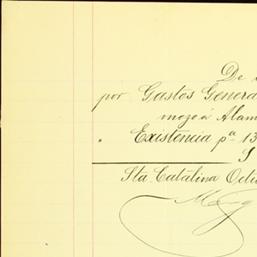 De
por Gastos Genera
mozo á Alam
" Existencia pª 13
S
Sta. Catalina Octu